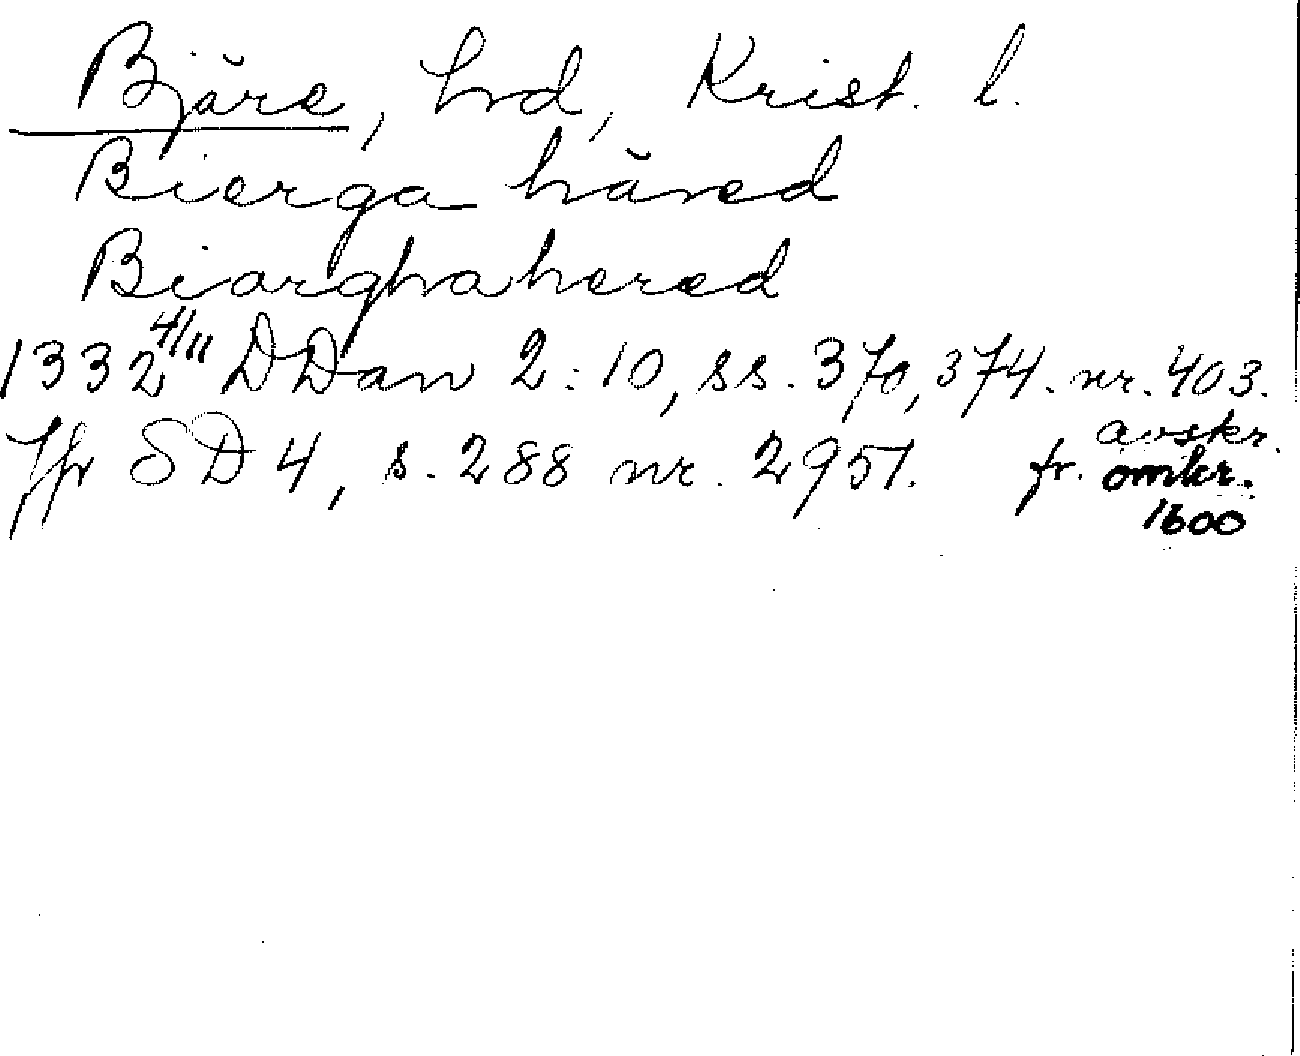 Bjäre, hrd, Krist. l.
Bierga häred
Biarghahered
1332 4/11 DDan 2:10, ss. 370, 374. nr. 403.
Jfr SD 4, s. 288 nr. 2951. fr. avskr.
omkr.
1600